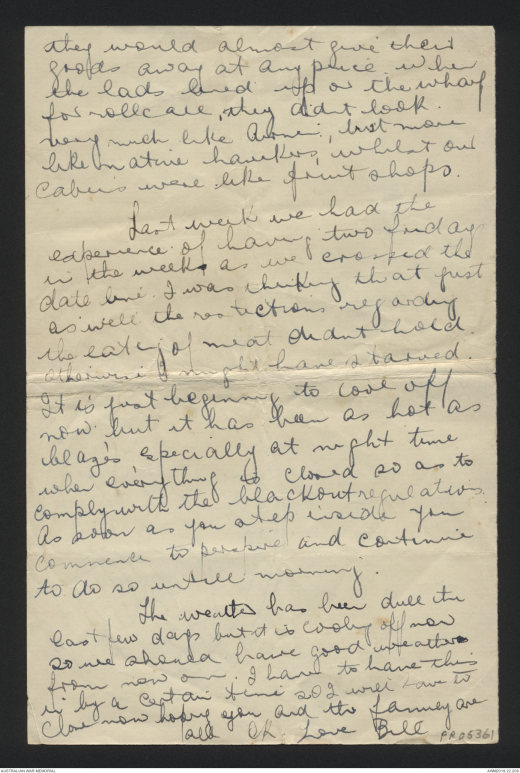 they would almost give their
goods away at any price when
the lads lined up on the wharf
for rollcall, they didnt look
very much like Airmen, but more
like native hawkers, whilst our
Cabins were like fruit shops.
Last week we had the
experience of having two Friday
in the week as we crossed the
date line. I was thinking that just
as well the restections regarding
the eating of meat didnt hold
otherwise I might have starved.
It is just beginning to cool off
now but it has been as hot as
blazes especially at night time
when everything is closed so as to
comply with the blackout regulations.
As soon as you step inside you
commence to perspire and continue
to do so untill morning.
The weather has been dull the
last few days but it is cooling off now
so we should have good weather
from now on. I have to have this
in by a certain time so I will have to
close now hoping you and the family are
all OK. Love Bill
PR05361
AUSTRALIAN WAR MEMORIAL